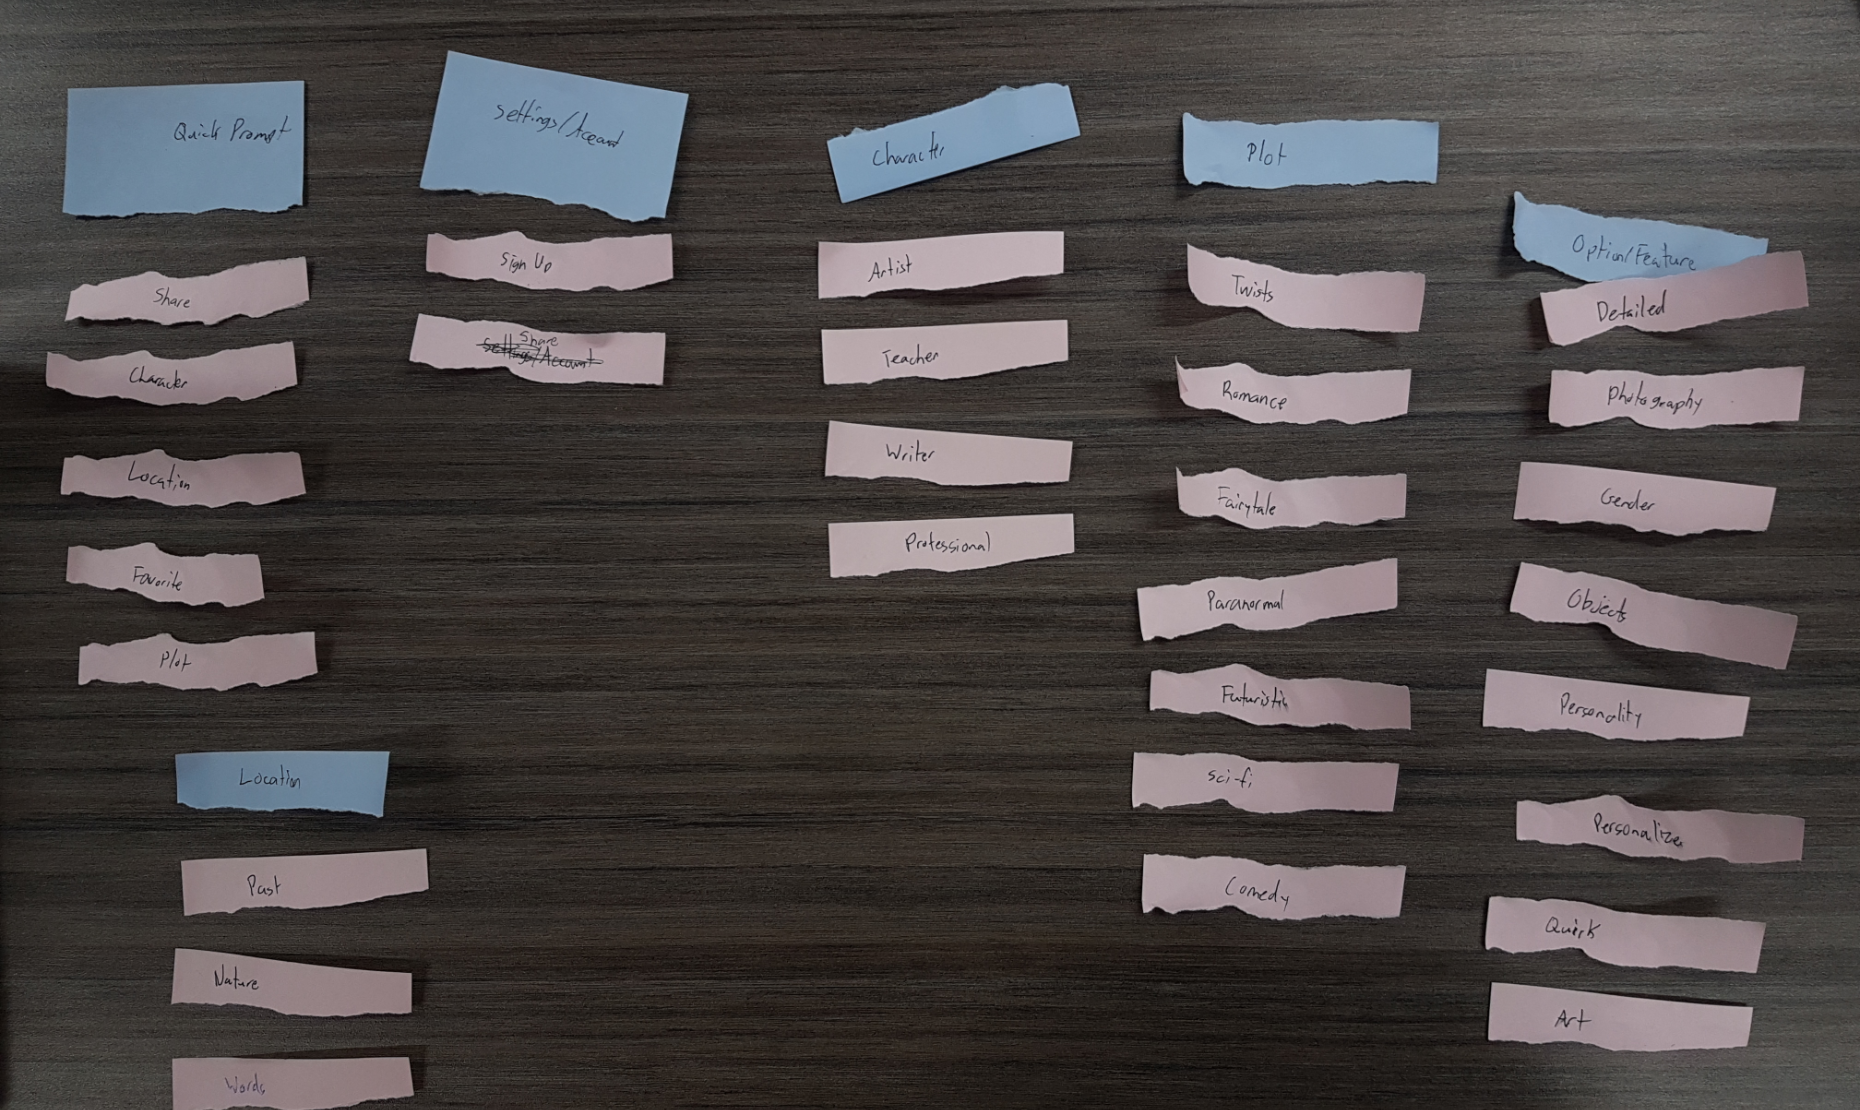 Quick Prompt
Share
Character
Location
Favorite
Plot
Location
Past
Nature
Words
Settings/Account
Sign Up
Share
Settings/Account
Character
Artist
Teacher
Writer
Professional
Plot
Twists
Romance
Fairytale
Paranormal
Futuristic
Sci-fi
Comedy
Option/Feature
Detailed
Photography
Gender
Objects
Personality
Personalize
Quick
Art